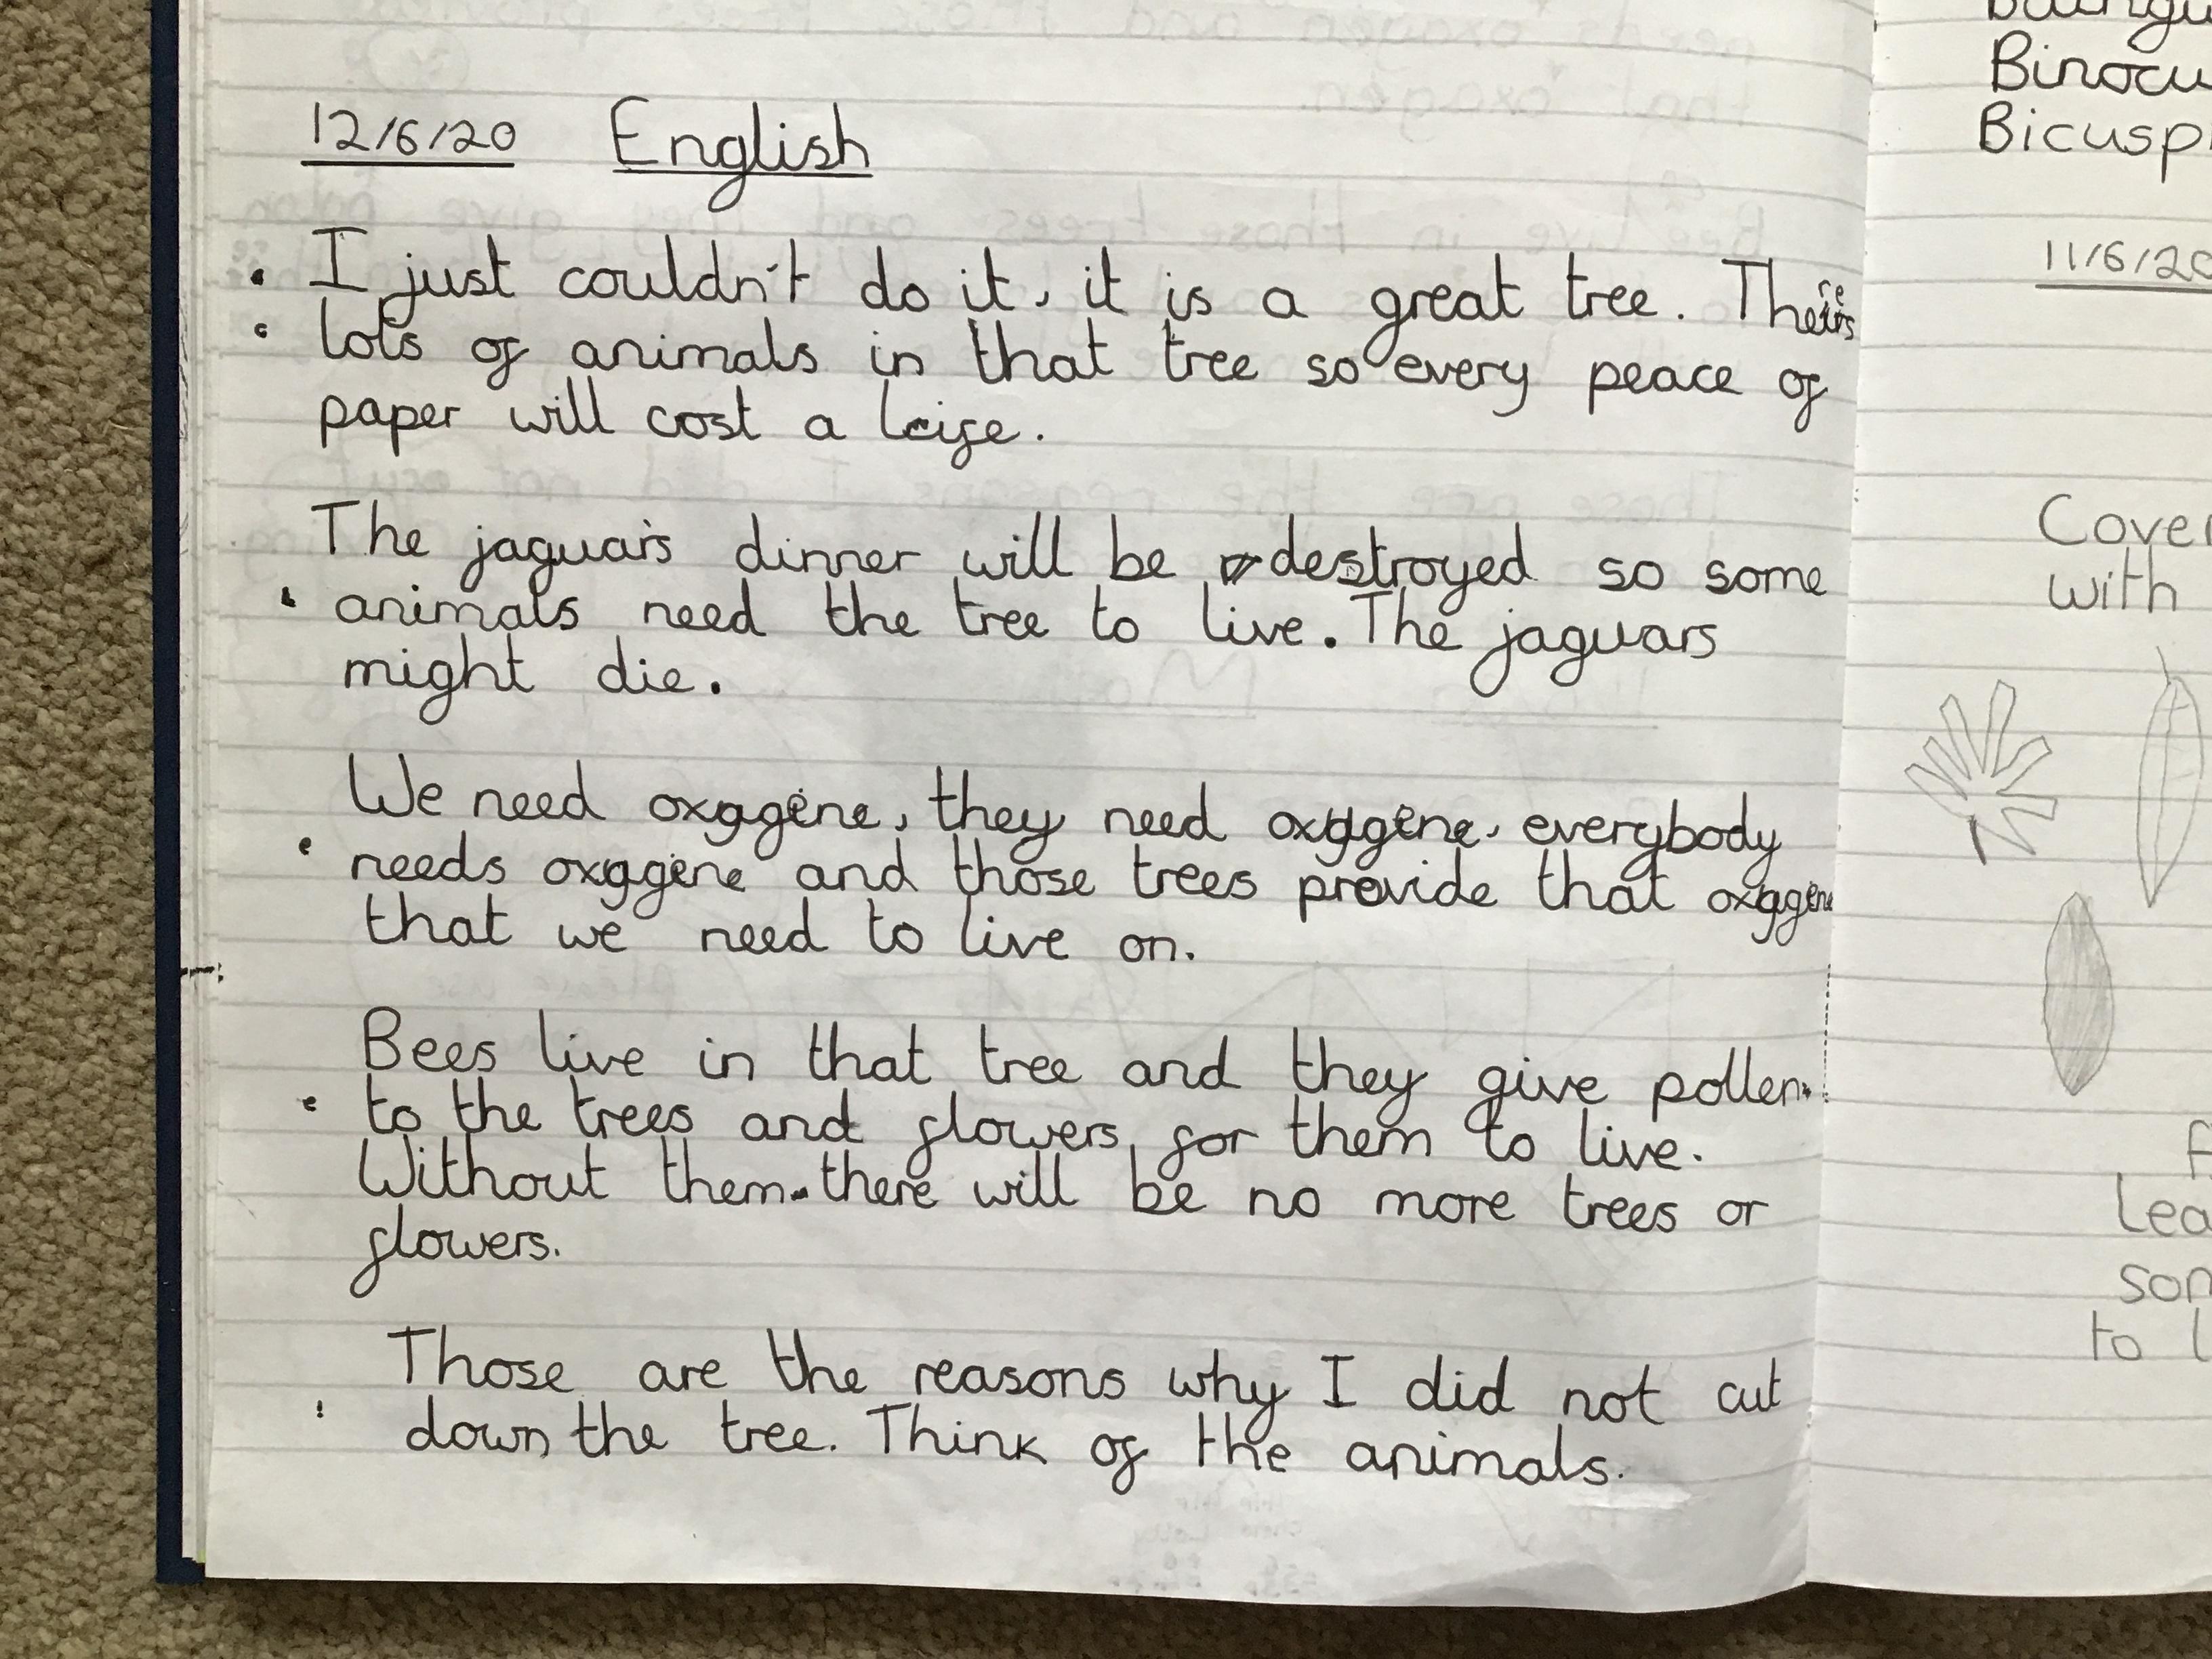 12/6/20 English
I just couldn't do it, it is a great tree. There's
lots of animals in that tree so every peace of
paper will cost a leife.
The jaguar's dinner will be destroyed so some
animals need the tree to live. The jaguars
might die.
We need oxygene, they need oxygene, everybody
needs oxygene and those trees provide that oxygene
that we need to live on.
Bees live in that tree and they give pollen
to the trees and flowers for them to live.
Without them there will be no more trees or
flowers.
Those are the reasons why I did not cut
down the tree. Think of the animals.
11/6/20
with
to